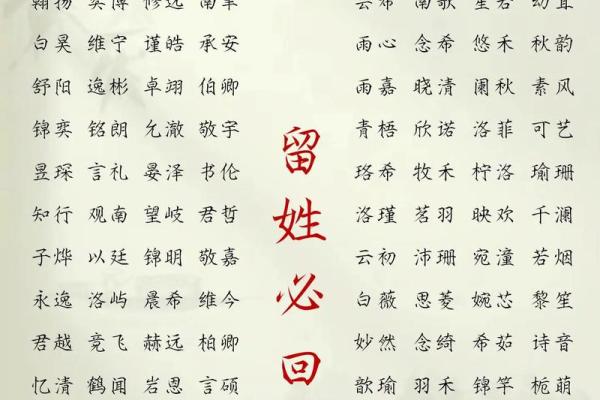 白昊 维宁 谨皓 承安 雨心 念希 悠禾 秋韵
舒阳 逸彬 卓翊 伯卿 雨嘉 晓清 阑秋 素风
锦奕 铭朗 允澈 敬宇 青梧 欣诺 洛菲 可艺
昱琛 言礼 晏泽 书伦 珞希 牧禾 柠洛 瑜珊
知行 观南 望岐 君哲 洛瑾 茗羽 映欢 千澜
子烨 以廷 锦明 敬嘉 云初 沛珊 宛潼 若烟
永逸 洛屿 晨希 维今 白薇 思菱 婉芯 黎笙
君越 竞飞 赫远 柏卿 妙然 念绮 希茹 诗音
忆清 鹤闻 岩恩 言硕 歆瑜 羽禾 锦竿 栀萌
留姓必回